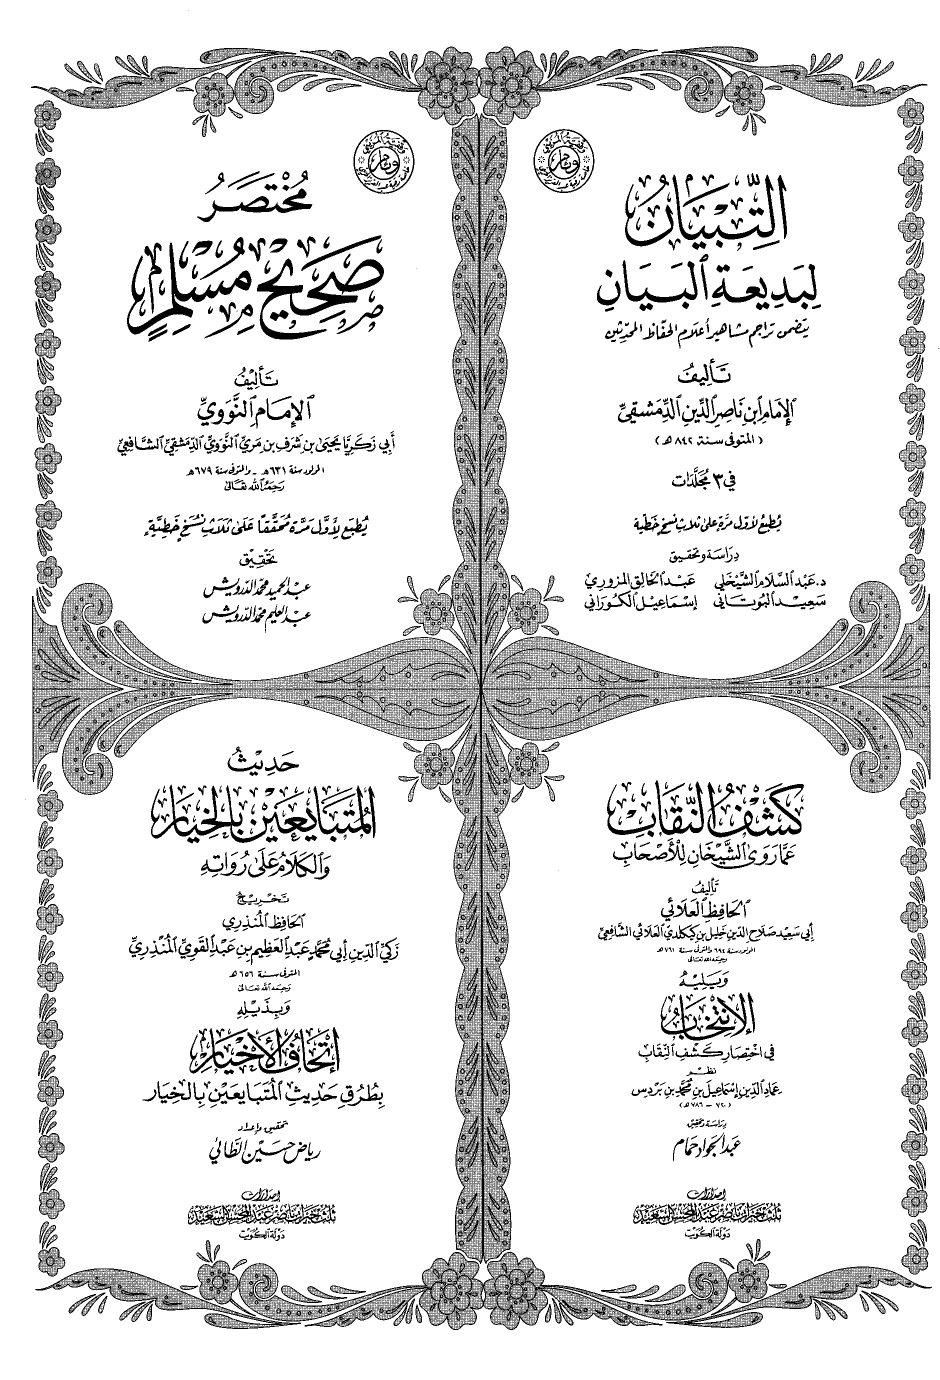 التِّبْيَانُ
لِبَدِيعَةِ البَيَانِ
يتضمن تراجم مشاهير أعلام الحفّاظ المحدّثين
تَأليفُ
الإمَام ابن نَاصِر الدِّين الدِّمَشقيّ
( المتوفى سنة ٨٤٢ هـ )
في ٣ مُجَلَّدَات
يُطبَعُ لأوّل مَرّة على ثلاث نسخ خَطّية
دِرَاسَة وتحقيق
د. عَبْد السَّلَام الشَّيْخلي عَبْد الخَالِق المزوري
سَعِيد البُوتَاني إسْمَاعيل الكُورَاني
مُخْتَصَرُ
صَحِيحِ مُسْلِمٍ
تَأليْفُ
الإمَام النَّوَويِّ
أبي زكريَّا يَحيَى بن شَرَف بن مَري النَّوَوي الدِّمَشقيّ الشَّافِعيّ
المولود سنة ٦٣١هـ - والمتوفى سنة ٦٧٩هـ
رَحِمَهُ الله تعَالىٰ
يُطبَع لأوَّل مَرَّة مُحَقَّقاً عَلَى ثلاثِ نُسَخٍ خَطيَّةٍ
تحقيق
عبد الحميد محمد الدرويش
عبد العليم محمد الدرويش
كَشْفُ النِّقَابِ
عَمَّا رَوَى الشَّيْخَانِ لِلأَصْحَابِ
تأليفُ
الحَافِظ العَلائي
أبي سَعِيد صَلاح الدين خَليل بن كيكلدي العَلائي الشَّافعيّ
المولود سنة ٦٩٤ والمتوفى سنة ٧٦١ هـ
رحمه الله تعالى
وَيَليْهُ
الإنْتِخَابُ
في اختِصَارِ كَشفِ النِّقَابِ
نظم
عِمَاد الدِّين إسْمَاعيل بن مُحمَّد بن بَردِس
(٧٢٠ - ٧٨٦ هـ)
دراسة وتحقيق
عَبد الجوَاد حمَام
إصدَارَات
دَولَة الكوَيت
حَدِيثُ
المُتَبَايِعَيْنِ بالخِيَارِ
وَالكَلَامُ عَلَى رُوَاتِهِ
تخريجُ
الحَافِظِ المُنذِري
زكيّ الدّين أبي محمّد عبد العَظِيم بن عَبد القَوِيّ المُنْذِريّ
المتوفى سنة ٦٥٦ هـ
رحمه الله تعالى
وَبذَيْلِهِ
إتْحَافُ الأخْيَارِ
بِطُرُقِ حَدِيثِ المُتَبَايِعَيْنِ بالخِيَار
تحقيق وإعداد
رياض حسين الطائي
إصدَارَات
دَولَة الكوَيت